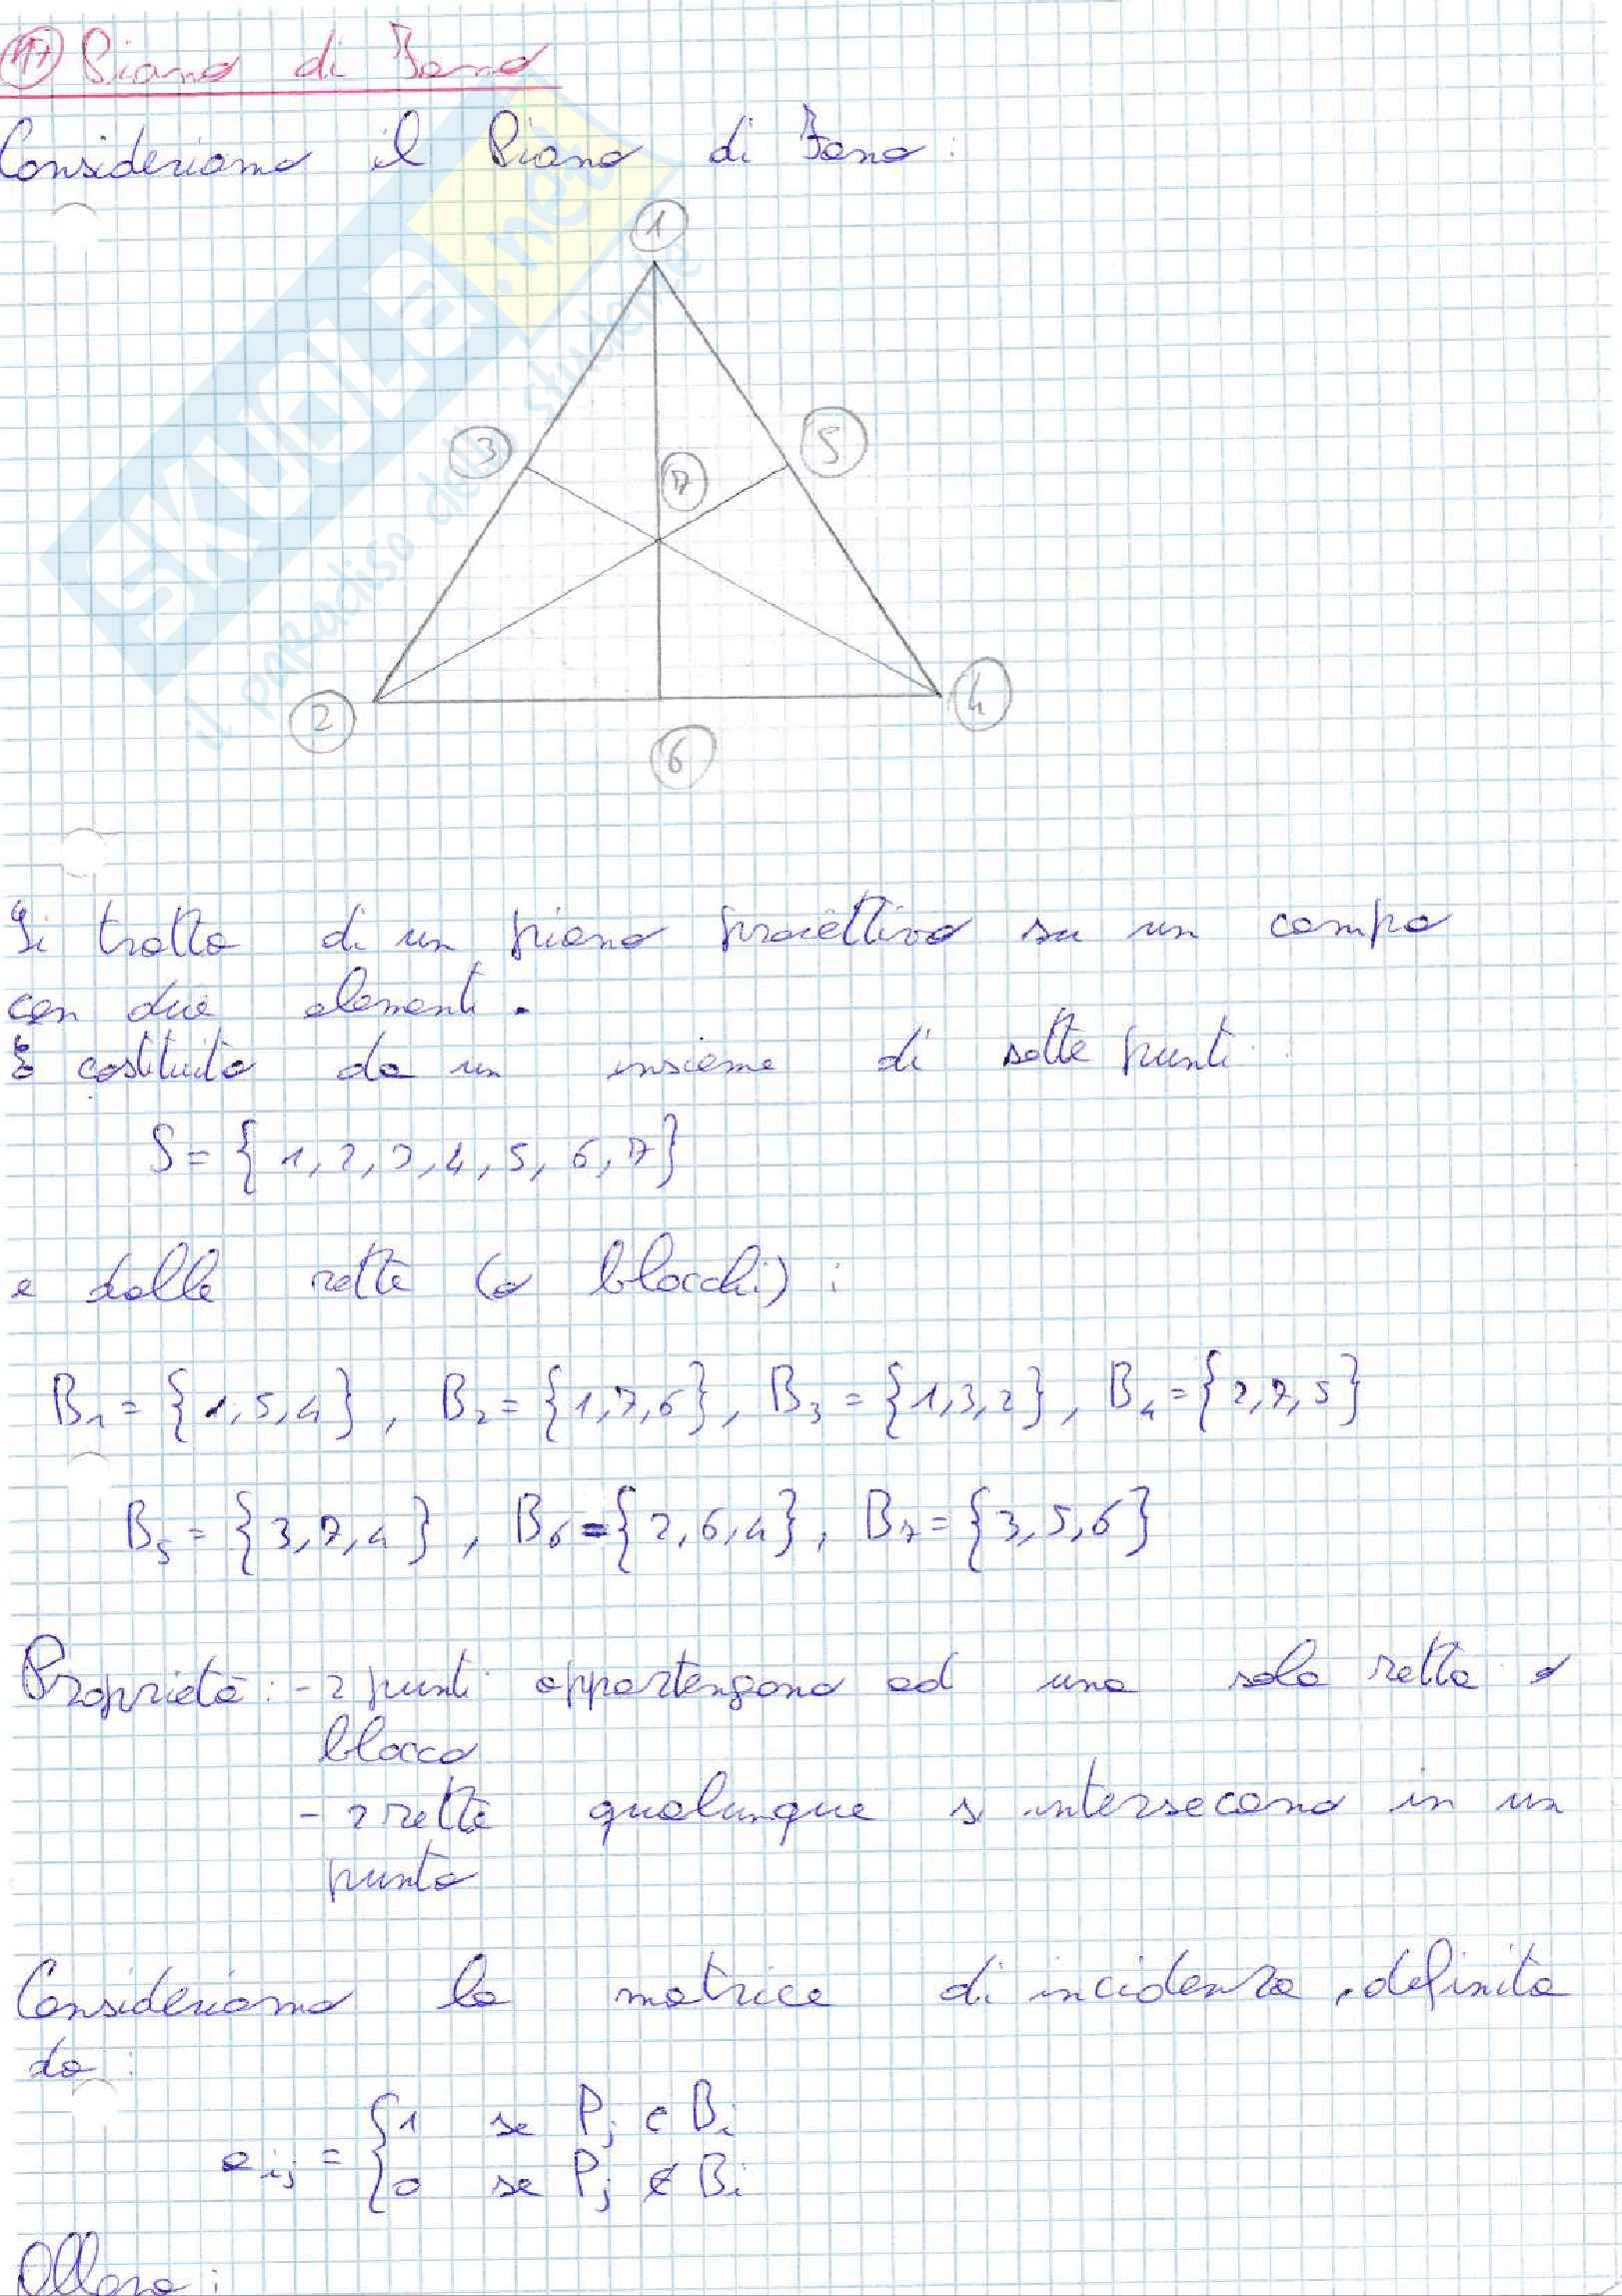 17 Piano di Fano
Consideriamo il Piano di Fano:
SKUOLA.net
il paradiso dello studente
1
3
5
7
2
4
6
Si tratta di un piano proiettivo su un campo
con due elementi.
È costituito da un insieme di sette punti:
S = { 1, 2, 3, 4, 5, 6, 7}
e dalle rette (o blocchi):
B₁ = {1,5,4}, B₂ = {1,7,6}, B₃ = {1,3,2}, B₄ = {2,7,5}
B₅ = {3,7,4}, B₆ = {2,6,4}, B₇ = {3,5,6}
Proprietà: - 2 punti appartengono ad una sola retta o
blocco
- 2 rette qualunque si intersecano in un
punto
Consideriamo la matrice di incidenza, definita
da:
aᵢⱼ = { 1 se Pⱼ ∈ Bᵢ
0 se Pⱼ ∉ Bᵢ